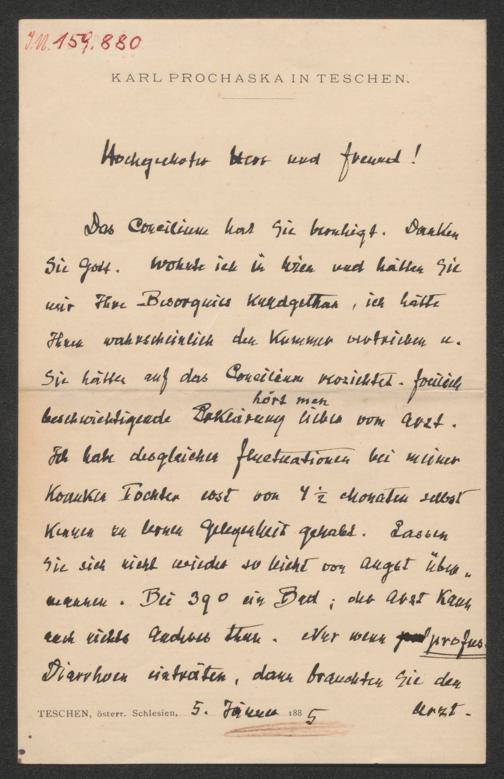 I.N. 159.880
KARL PROCHASKA IN TESCHEN.
Hochgeehrter Herr und Freund!
Das Concilium hat Sie beruhigt. Danken
Sie Gott. Wohnte ich in Wien und hätten Sie
mir Ihre Besorgniss kundgethan, ich hätte
Ihnen wahrscheinlich den Kummer vertrieben u.
Sie hätten auf das Concilium verzichtet. Freilich
hört man
beschwichtigende Erklärung lieber vom Arzt.
Ich habe desgleichen Fluctuationen bei meiner
kranken Tochter erst vor 4 ½ Monaten selbst
kennen zu lernen Gelegenheit gehabt. Lassen
Sie sich nicht wieder so leicht von Angst über-
mannen. Bei 39° ein Bad; der Arzt kann
auch nichts Anderes thun. Nur wenn profus.
Diarrhoen einträten, dann brauchten Sie den
Arzt.
TESCHEN, österr. Schlesien, 5. Jänner 1885